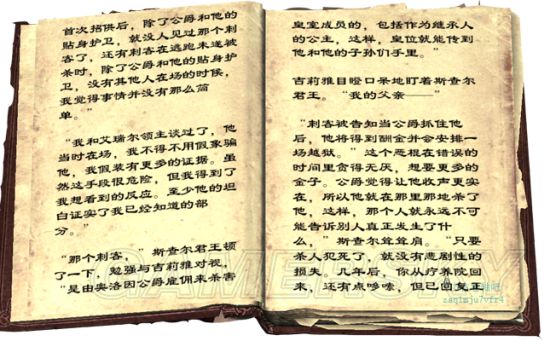 首次招供后，除了公爵和他的
贴身护卫，就没人见过那个刺
客了，还有刺客在逃跑未遂被
杀时，除了公爵和他的贴身护
卫，没有其他人在场的时候，
我觉得事情并没有那么简
单。"
"我和艾瑞尔领主谈过了，他
当时在场，我不得不用假象骗
他，我假装有更多的证据。虽
然这手段很危险，但我得到了
我想看到的反应。至少他的坦
白证实了我已经知道的部
分。"
"那个刺客，"斯查尔君王顿
了一下，勉强与吉莉雅对视，
"是由奥洛因公爵雇佣来杀害
皇室成员的，包括作为继承人
的公主，这样，皇位就能传到
他和他的子孙们手里。"
吉莉雅目瞪口呆地盯着斯查尔
君王。"我的父亲——"
"刺客被告知当公爵抓住他
后，他将得到酬金并会安排一
场越狱。"这个恶棍在错误的
时间里贪得无厌，想要更多的
金子。公爵觉得让他收声更实
在，所以他就在那里那地杀了
他，这样，那个人就永远不可
能告诉别人真正发生了什
么，"斯查尔耸耸肩。"只要
杀人犯死了，就没有悲剧性的
损失。几年后，你从疗养院回
来，还有点哆嗦，但已回复正
GAMERSKY
zaq1mju7vfr4